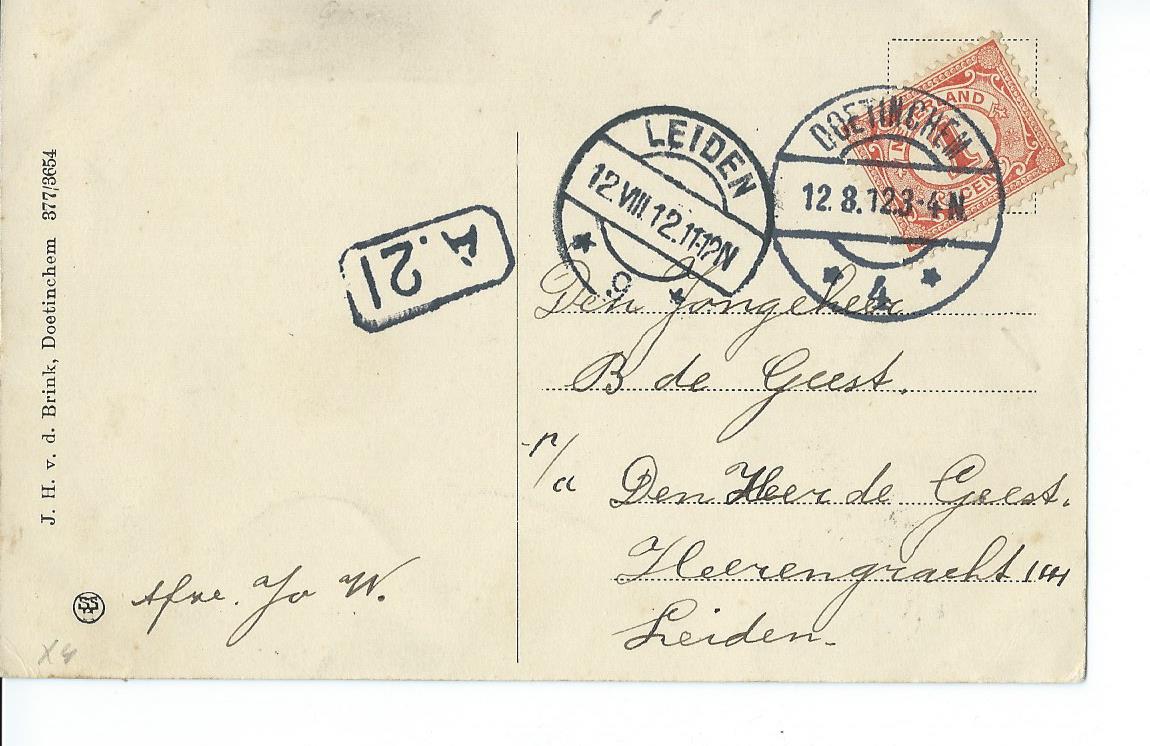 J. H. v. d. Brink, Doetinchem 377/3654
A.21
LEIDEN
12.VIII.12.11-12N
9
DOETINCHEM
12.8.12.3-4 N
4
Den Jongeheer
B de Geest.
p/a Den Heer de Geest.
Heerengracht
Leiden.
Afz. Jo W.